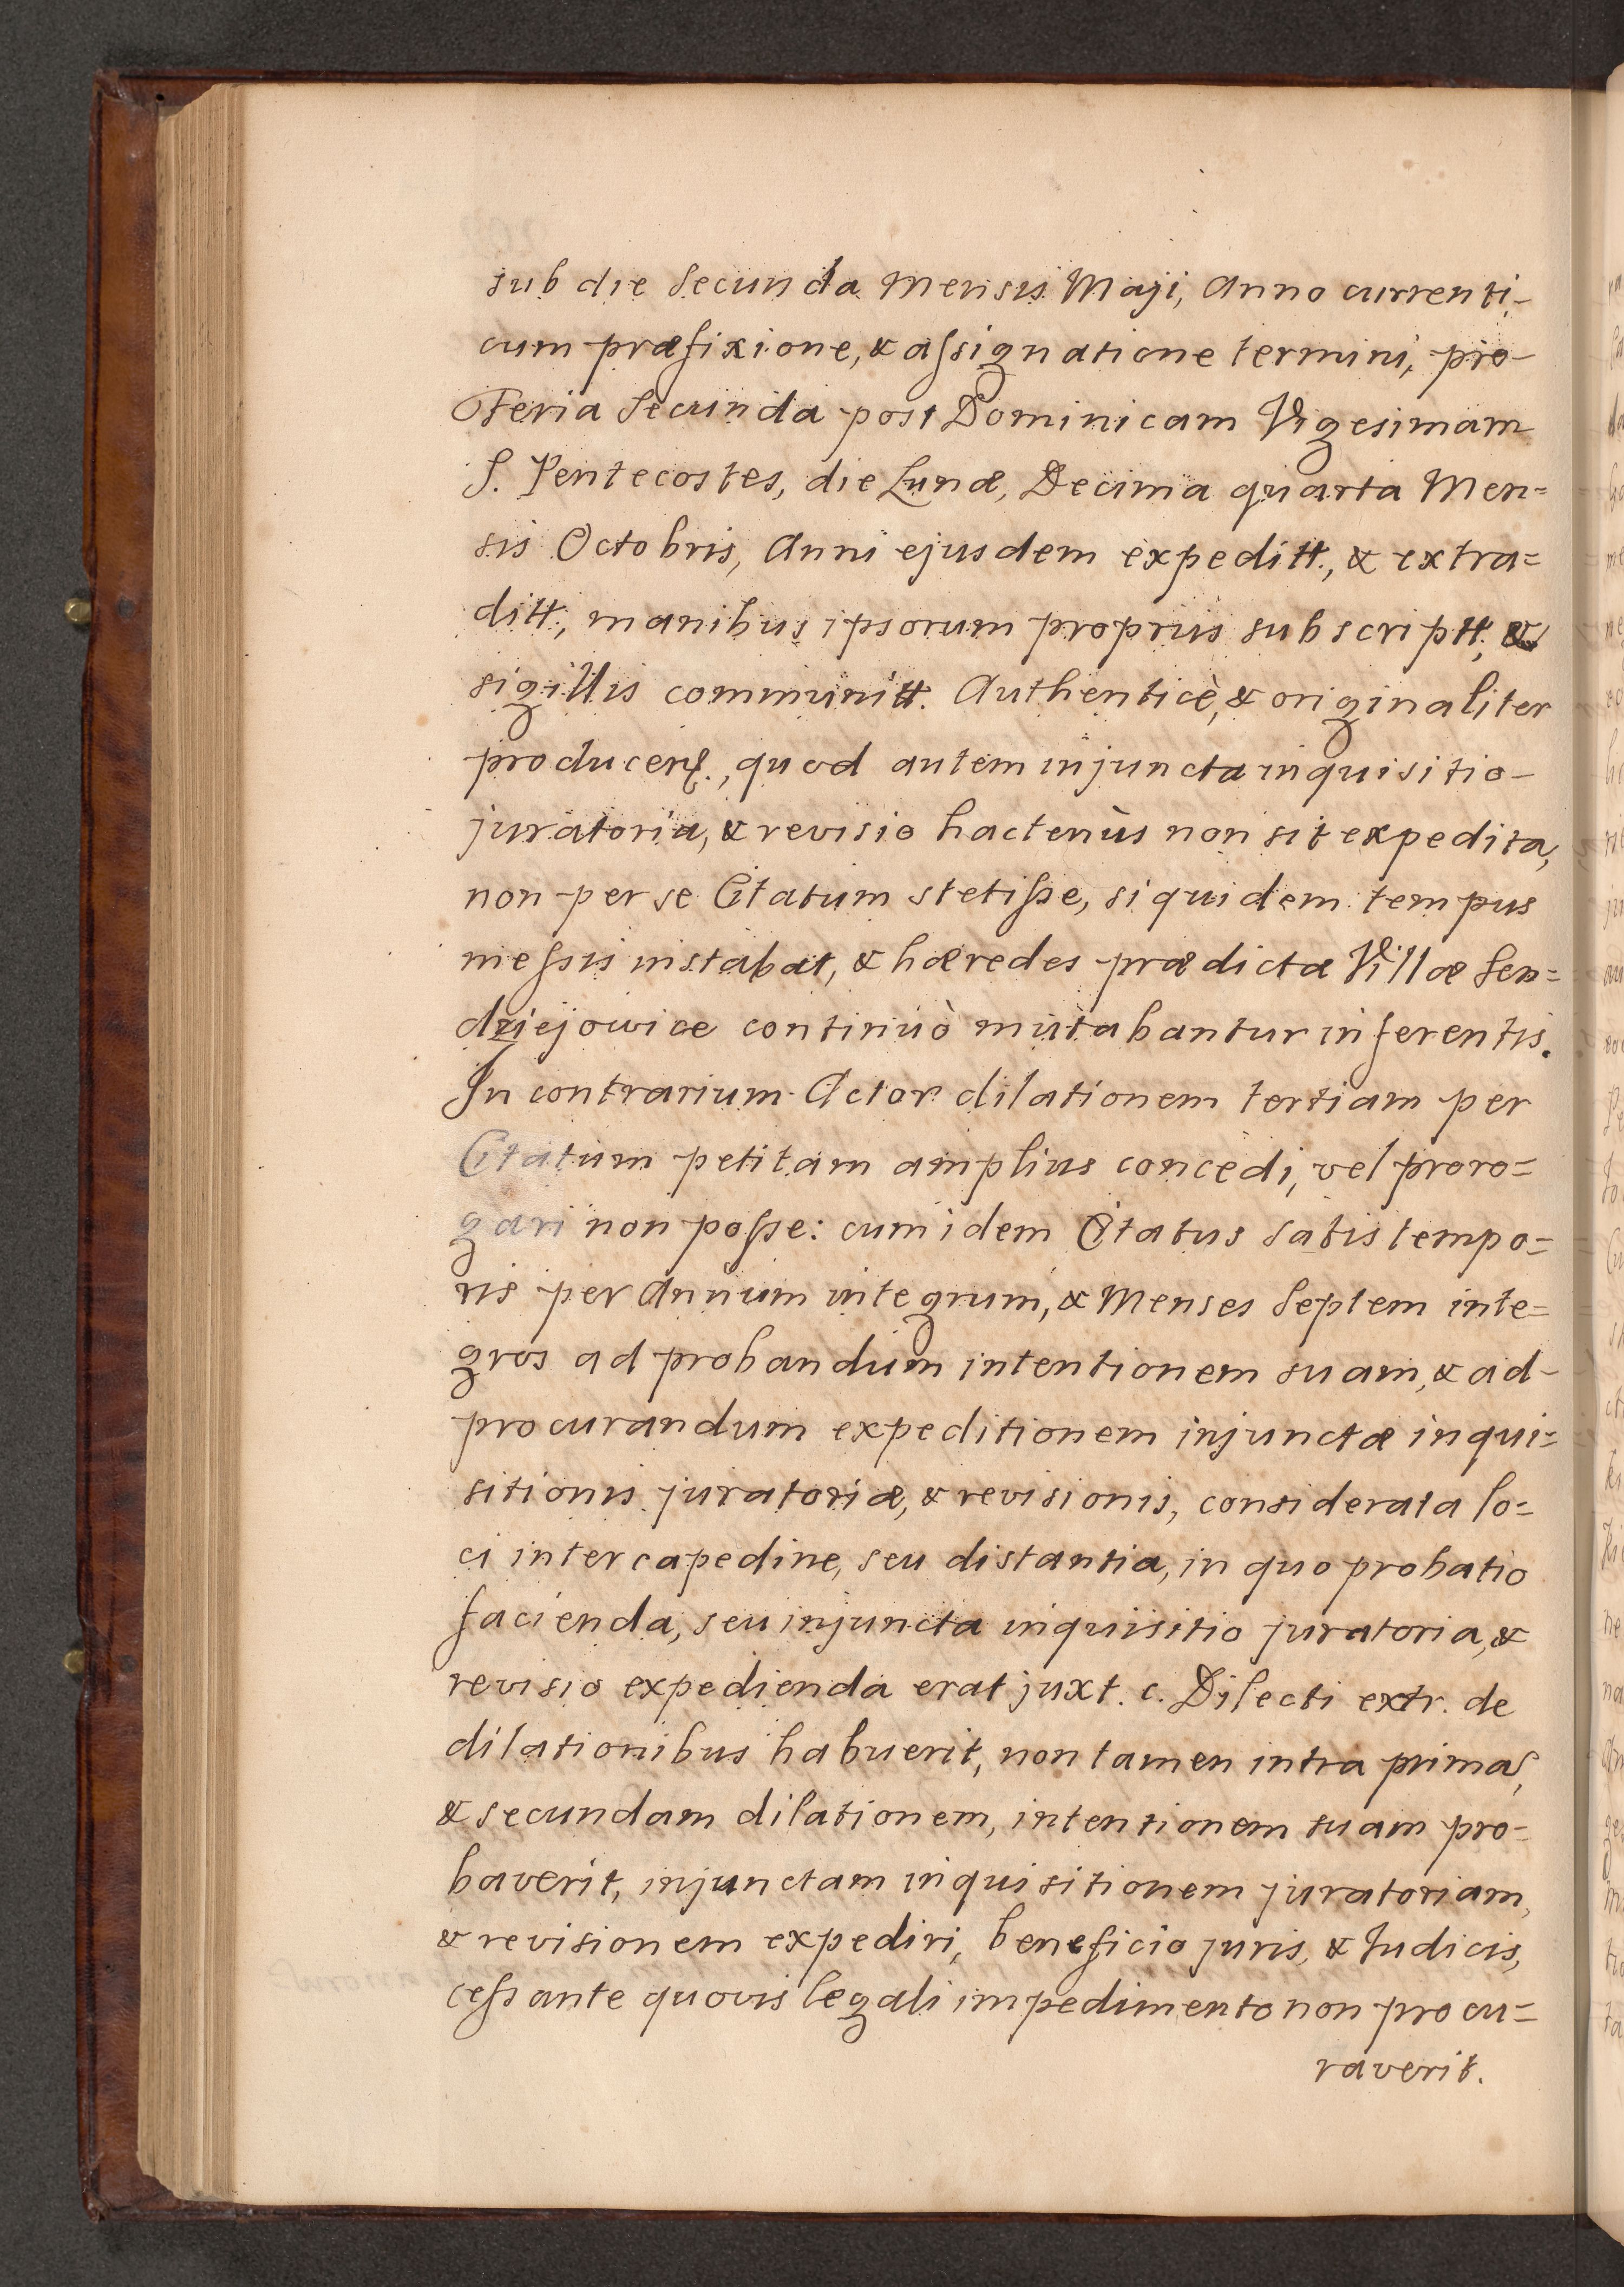 sub die Secunda Mensis Maji, Anno currenti,
cum præfixione, & assignatione termini, pro
Feria Secunda post Dominicam Vigesimam
S. Pentecostes, die Lunæ, Decima quarta Men=
sis Octobris, Anni ejusdem expeditt., & extra=
ditt., manibus ipsorum propriis subscriptt., &
sigillis communitt. Authenticè, & originaliter
producen., quod autem injuncta inquisitio
juratoria, & revisio hactenùs non sit expedita,
non per se Citatum stetisse, siquidem tempus
messis instabat, & hæredes prædictæ Villæ Sen=
dziejowice continuò mutabantur inferentis.
In contrarium Actor dilationem tertiam per
Citatum petitam amplius concedi, vel proro=
gari non posse: cum idem Citatus satis tempo=
ris per Annum integrum, & Menses Septem inte=
gros ad probandum intentionem suam, & ad
procurandum expeditionem injunctæ inqui=
sitionis juratoriæ, & revisionis, considerata lo=
ci intercapedine, seu distantia, in quo probatio
facienda, seu injuncta inquisitio juratoria, &
revisio expedienda erat juxt. c. Dilecti extr. de
dilationibus habuerit, non tamen intra primā,
& secundam dilationem, intentionem suam pro=
baverit, injunctam inquisitionem juratoriam,
& revisionem expediri, beneficio juris, & Judicis,
cessante quovis legali impedimento non procu=
raverit.